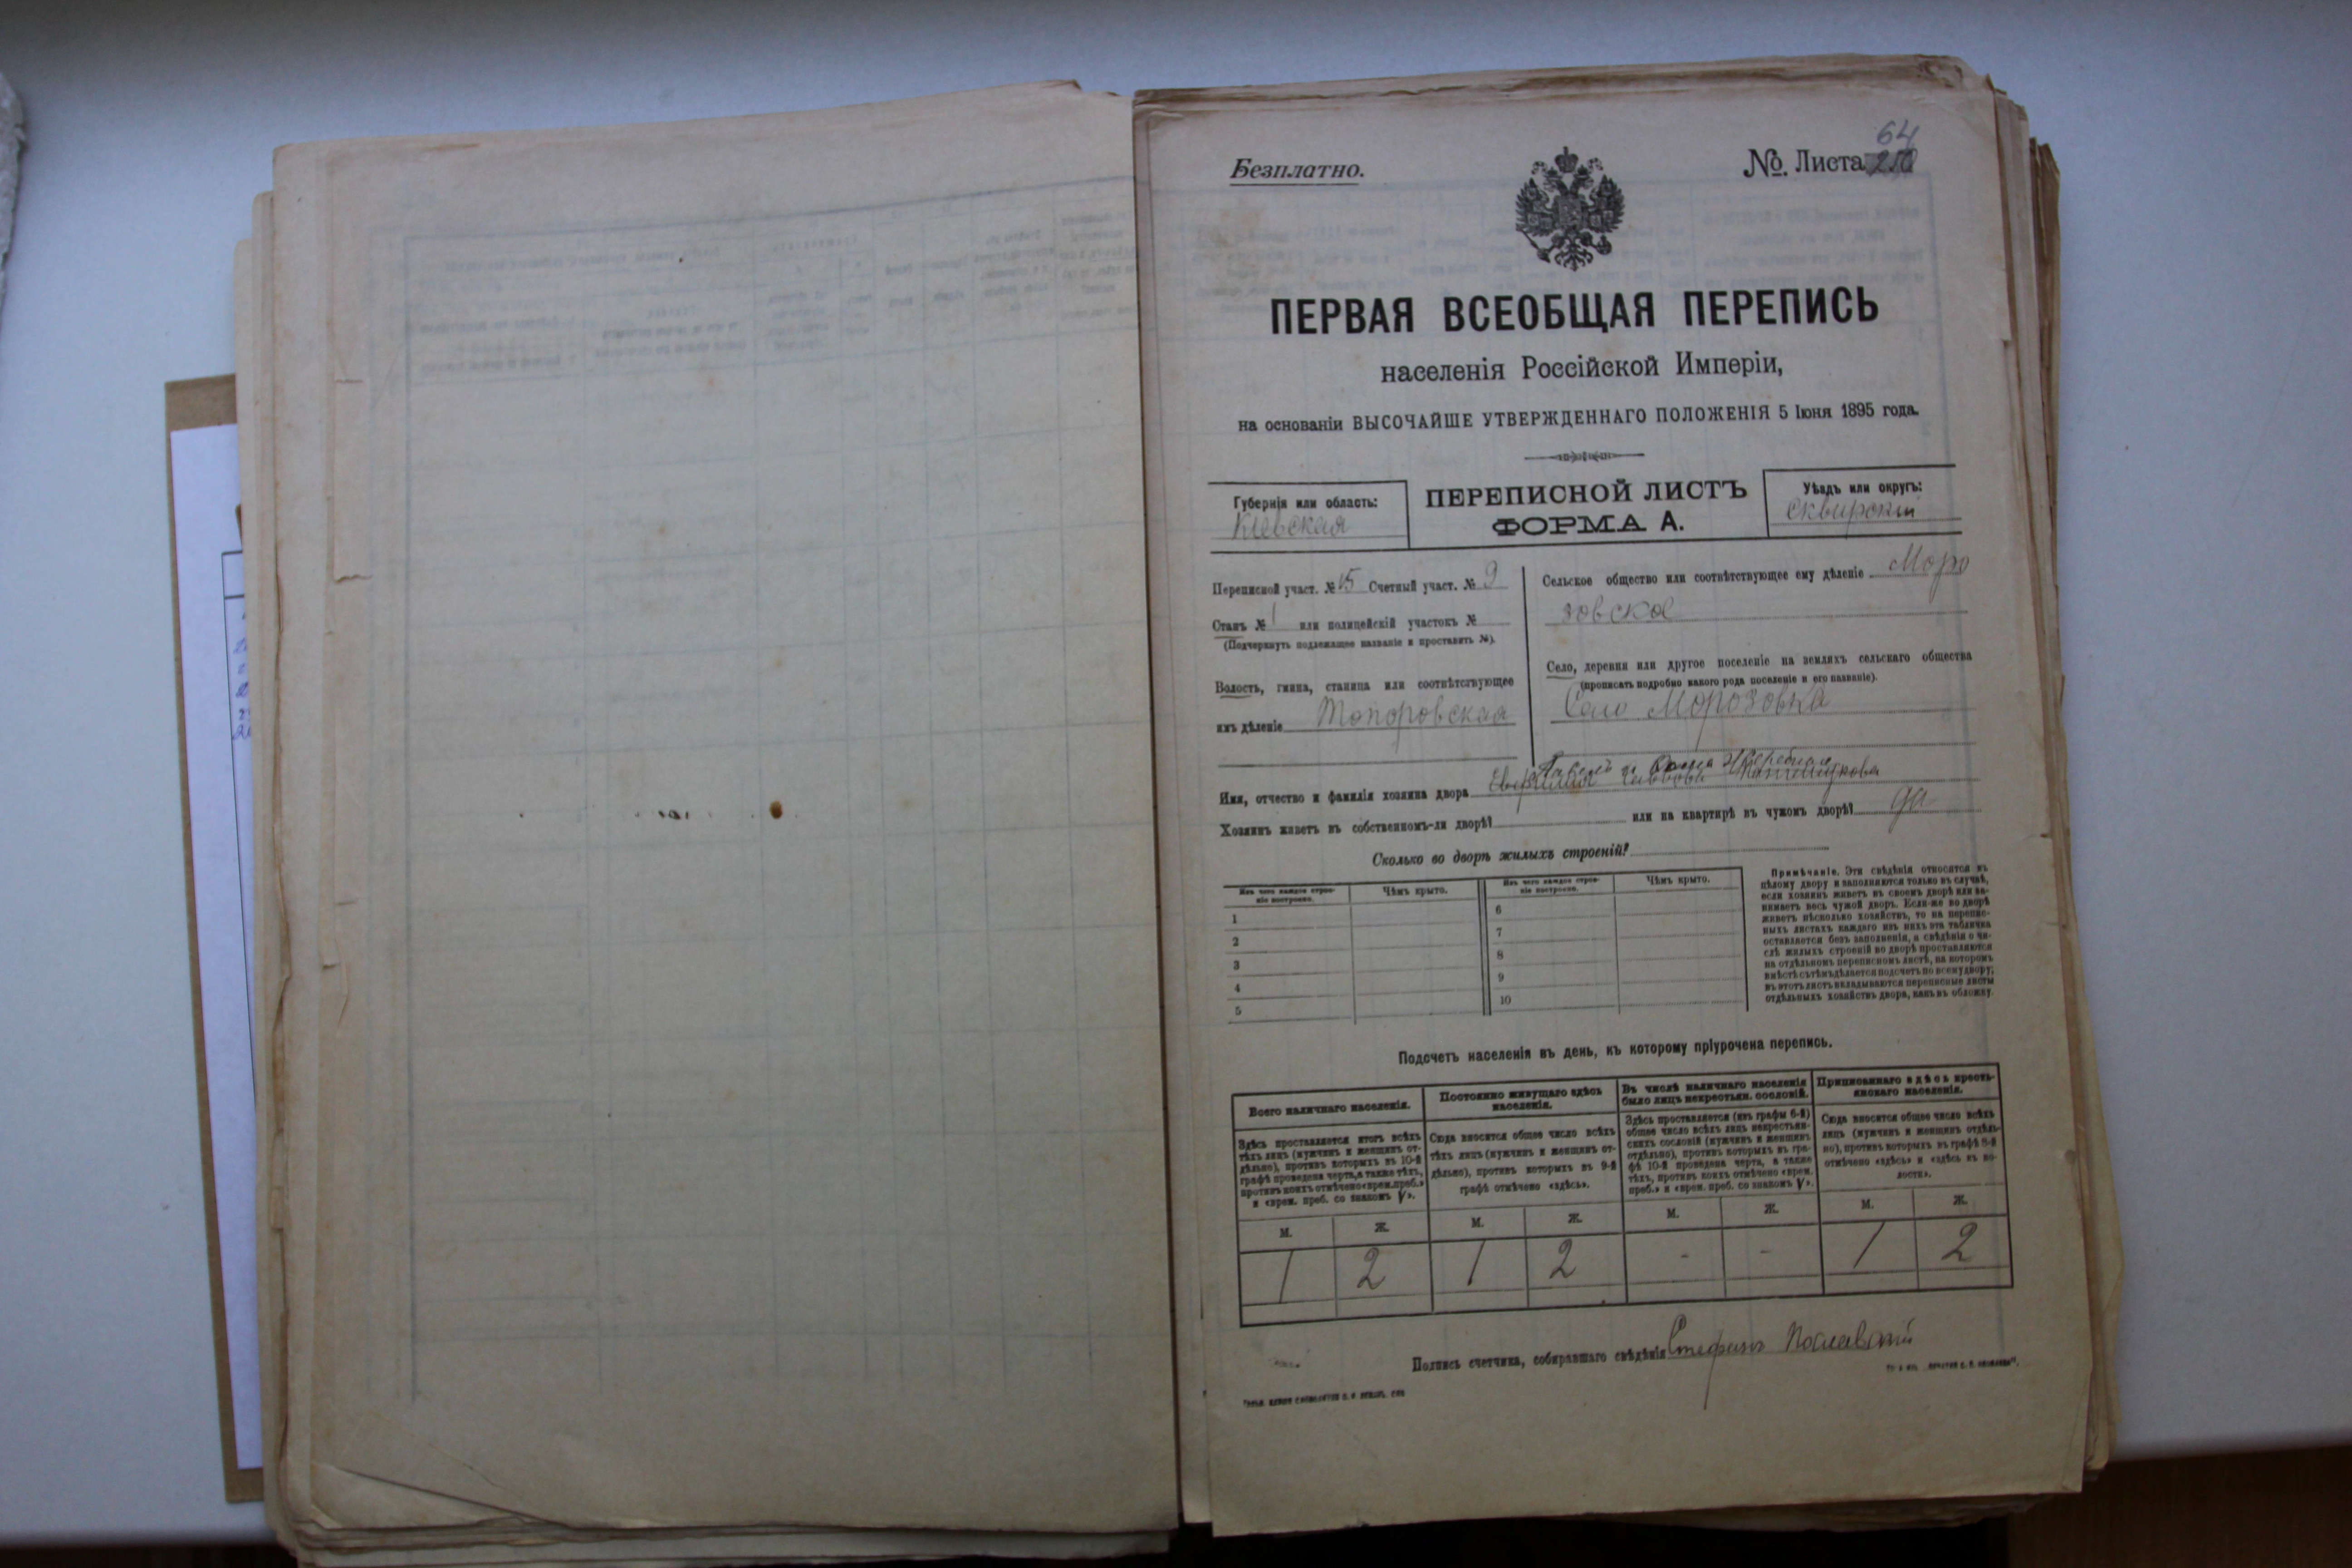 Безплатно.
64
No. Листа 250
ПЕРВАЯ ВСЕОБЩАЯ ПЕРЕПИСЬ
населенія Россійской Имперіи,
на основаніи ВЫСОЧАЙШЕ УТВЕРЖДЕННАГО ПОЛОЖЕНІЯ 5 Іюня 1895 года.
Губернія или область:
Кіевская
ПЕРЕПИСНОЙ ЛИСТЪ
ФОРМА А.
Уѣздъ или округъ:
Сквирскій
Переписной участ. № 15 Счетный участ. № 9
Станъ № 1 или полицейскій участокъ №
(Подчеркнуть подлежащее названіе и проставить №).
Волость, гмина, станица или соотвѣтствующее
имъ дѣленіе Топоровская
Сельское общество или соотвѣтствующее ему дѣленіе Моро
зовское
Село, деревня или другое поселеніе на земляхъ сельскаго общества
(прописать подробно какого рода поселеніе и его названіе).
Село Морозовка
Имя, отчество и фамилія хозяина двора
Хозяинъ живетъ въ собственномъ-ли дворѣ? или на квартирѣ въ чужомъ дворѣ? да
Сколько во дворѣ жилыхъ строеній?
Изъ чего каждое строе-
ніе построено.
Чѣмъ крыто.
Изъ чего каждое строе-
ніе построено.
Чѣмъ крыто.
1
2
3
4
5
6
7
8
9
10
Примѣчаніе. Эти свѣдѣнія относятся къ
цѣлому двору и заполняются только въ случаѣ,
если хозяинъ живетъ въ своемъ дворѣ или за-
нимаетъ весь чужой дворъ. Если-же во дворѣ
живетъ нѣсколько хозяйствъ, то на перепис-
ныхъ листахъ каждаго изъ нихъ эта табличка
оставляется безъ заполненія, а свѣдѣнія о чи-
слѣ жилыхъ строеній во дворѣ проставляются
на отдѣльномъ переписномъ листѣ, на которомъ
вмѣстѣ съ тѣмъ дѣлается подсчетъ по всему двору;
въ этотъ листъ вкладываются переписные листы
отдѣльныхъ хозяйствъ двора, какъ въ обложку.
Подсчетъ населенія въ день, къ которому пріурочена перепись.
Всего наличнаго населенія.
Здѣсь проставляется итогъ всѣхъ
тѣхъ лицъ (мужчинъ и женщинъ от-
дѣльно), противъ которыхъ въ 10-й
графѣ проведена черта, а также тѣхъ,
противъ коихъ отмѣчено «врем. преб.»
и «врем. преб. со знакомъ V».
Постоянно живущаго здѣсь
населенія.
Сюда вносится общее число всѣхъ
тѣхъ лицъ (мужчинъ и женщинъ от-
дѣльно), противъ которыхъ въ 9-й
графѣ отмѣчено «здѣсь».
Въ числѣ наличнаго населенія
было лицъ некрестьян. сословій.
Здѣсь проставляется (изъ графы 6-й)
общее число всѣхъ лицъ некрестьян-
скихъ сословій (мужчинъ и женщинъ
отдѣльно), противъ которыхъ въ гра-
фѣ 10-й проведена черта, а также
тѣхъ, противъ коихъ отмѣчено «врем.
преб.» и «врем. преб. со знакомъ V».
Приписаннаго здѣсь кресть-
янскаго населенія.
Сюда вносится общее число всѣхъ
лицъ (мужчинъ и женщинъ отдѣль-
но), противъ которыхъ въ графѣ 8-й
отмѣчено «здѣсь» и «здѣсь въ во-
лости».
М. Ж. М. Ж. М. Ж. М. Ж.
1 2 1 2 - - 1 2
Подпись счетчика, собиравшаго свѣдѣнія Стефанъ